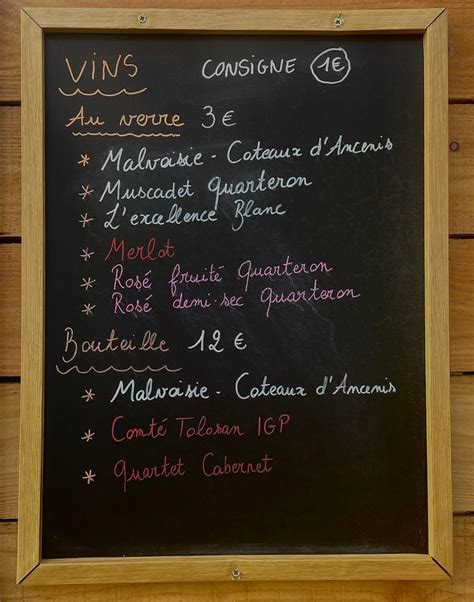 VINS CONSIGNE 1€
Au verre 3€
* Malvoisie - Coteaux d'Ancenis
* Muscadet Quarteron
* L'excellence Blanc
* Merlot
* Rosé fruité Quarteron
* Rosé demi-sec Quarteron
Bouteille 12€
* Malvoisie - Coteaux d'Ancenis
* Comté Tolosan IGP
* Quartet Cabernet